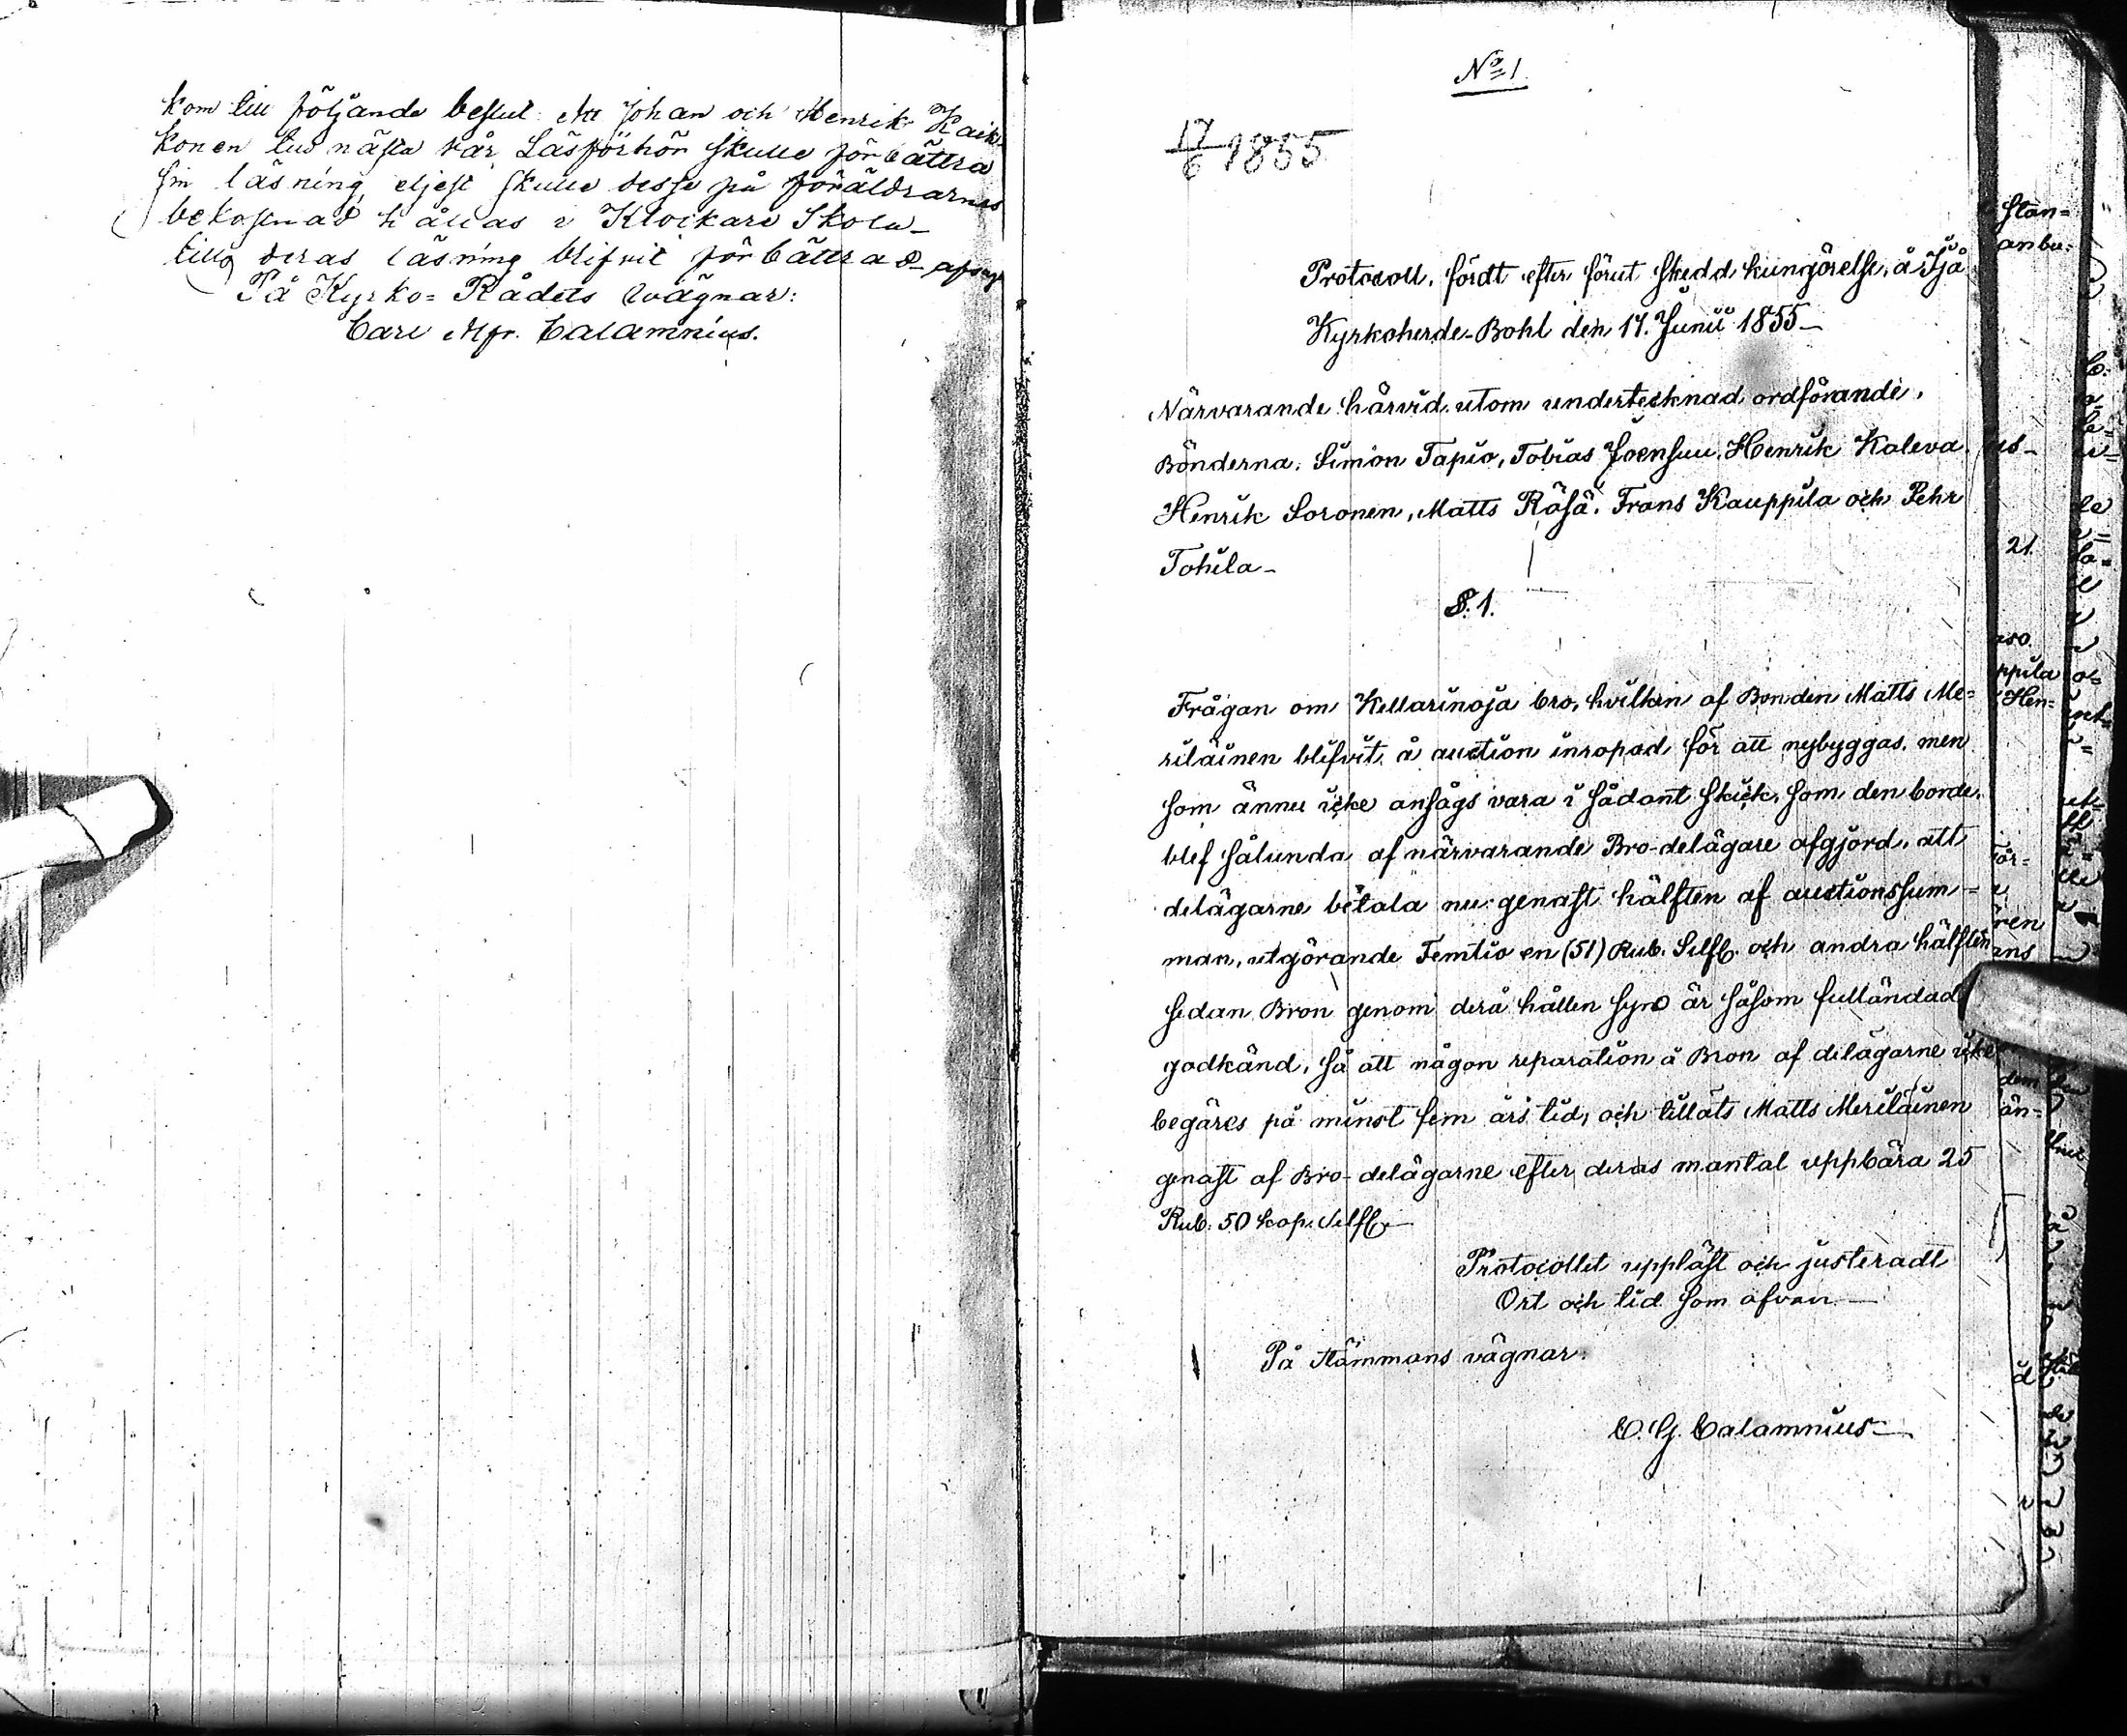 kom till följande beslut: Att Johan och Henrik Kaik-
konen till nästa vår Läsförhör skulle förbättra
sin läsning, eljest skulle desse på föräldrarnes
bekostnad hållas i Klockare Skola
tills deras läsning blifvit förbättrad
På Kyrko-Rådets wägnar:
Carl Calamnius.
No 1.
17/6 1855
Protocoll, fördt efter förut skedd kungörelse, å Ijå
Kyrkoherde-Bohl den 17. Junii 1855_
Närvarande härvid, utom undertecknad ordförande,
Bönderna: Simon Tapio, Tobias Joensuu, Henrik Kaleva,
Henrik Soronen, Matts Räsä, Frans Kauppila och Pehr
Tohila_
§. 1.
Frågan om Kellarinoja bro, hvilken af Bonden Matts Me=
riläinen blifvit å auction inropad för att nybyggas, men
som ännu icke ansågs vara i sådant skick, som den borde,
blef sålunda af närvarande Bro-delägare afgjord, att
delägarne betala nu genast hälften af auctionssum=
man, utgörande Femtio en (51) Rub. Silfv. och andra hälften
sedan Bron genom derå hållen syn är såsom fulländad
godkänd, så att någon reparation å Bron af delägarne icke
begäres på minst fem års tid, och tilläts Matts Meriläinen
genast af Bro-delägarne efter deras mantal uppbära 25
Rub. 50 kop. Silfv_
Protocollet uppläst och justeradt
Ort och tid som ofvan_
På Stämmans vägnar:
C. G. Calamnius_